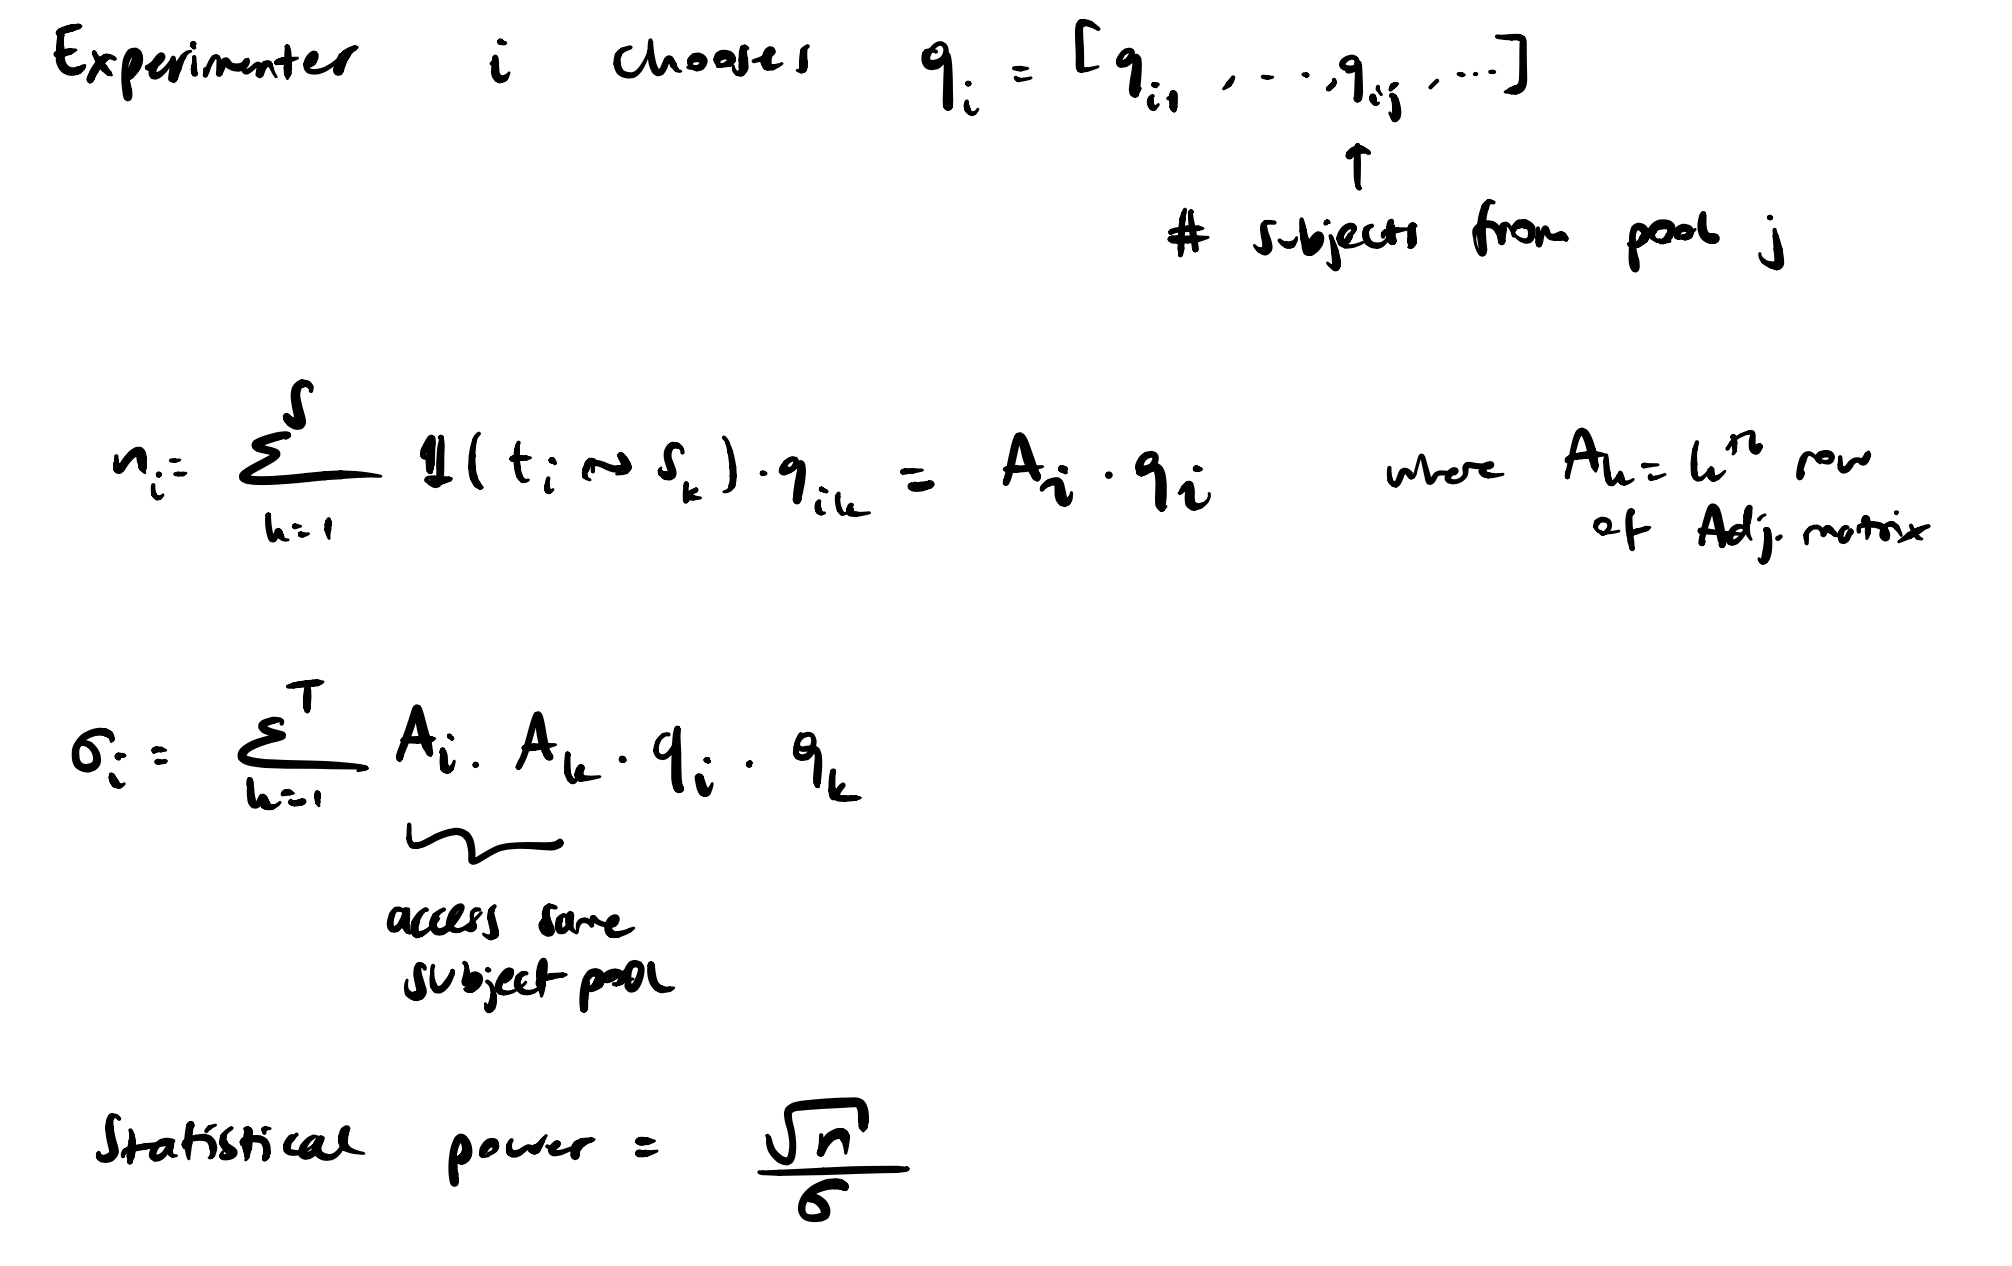 Experimenter i chooses qᵢ = [qᵢ₁, ..., qᵢⱼ, ...]
↑
# subjects from pool j
nᵢ = Σₖ₌₁ˢ 𝟙(tᵢ ~ sₖ) · qᵢₖ = Aᵢ · qᵢ where Aₖ = kᵗʰ row
of Adj. matrix
σᵢ = Σₖ₌₁ᵀ Aᵢ · Aₖ · qᵢ · qₖ
access same
subject pool
Statistical power = √n / σ